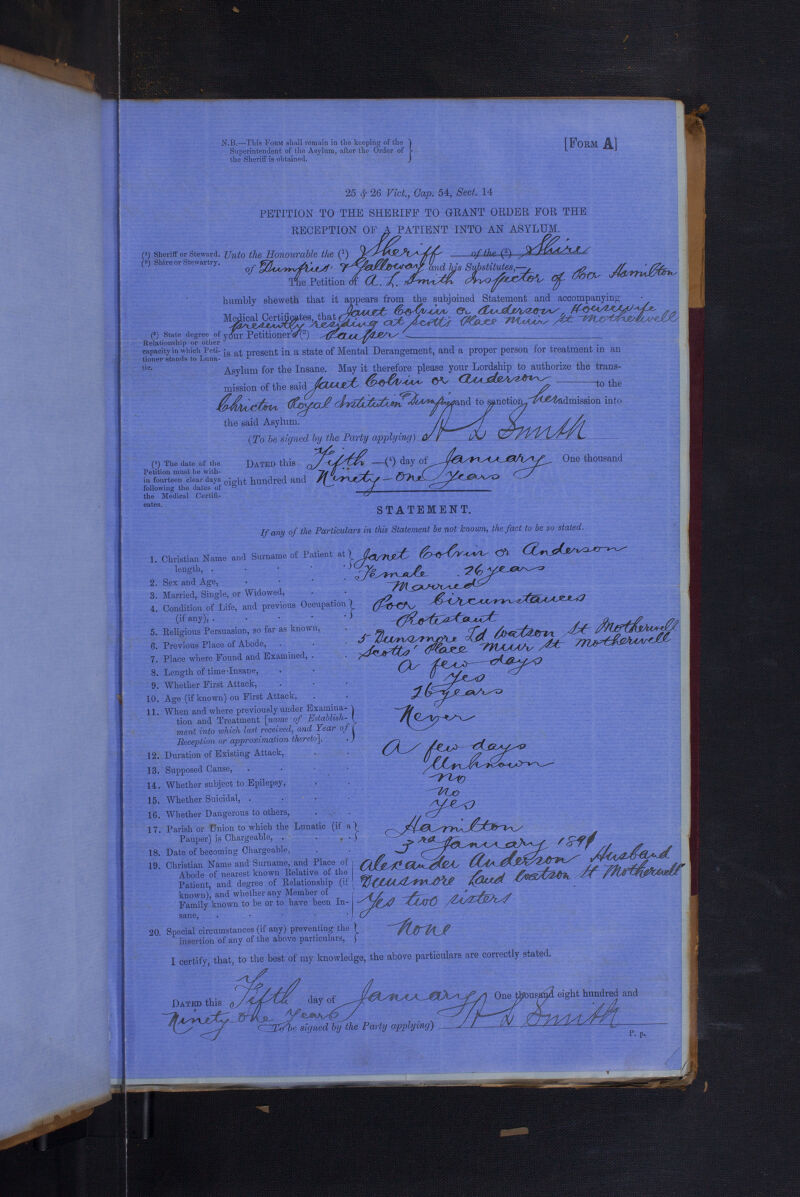 N.B.—This FORM shall remain in the keeping of the
Superintendent of the Asylum, after the Order of
the Sheriff is obtained.
[FORM A]
25 & 26 Vict., Cap. 54, Sect. 14
PETITION TO THE SHERIFF TO GRANT ORDER FOR THE
RECEPTION OF A PATIENT INTO AN ASYLUM.
(1) Sheriff or Steward.
(2) Shire or Stewartry.
Unto the Honourable the (1) Sheriff of the (2) Shire
of Dumfries & Galloway and his Substitutes,—
The Petition of A. L. Smith Inspector of Poor Hamilton
humbly sheweth that it appears from the subjoined Statement and accompanying
Medical Certificates, that Janet Colvin or Anderson, Housewife
presently residing at Scott's Place Muir St Motherwell
(3) State degree of
Relationship or other
capacity in which Peti-
tioner stands to Luna-
tic.
your Petitioner's (3) Pauper
is at present in a state of Mental Derangement, and a proper person for treatment in an
Asylum for the Insane. May it therefore please your Lordship to authorize the trans-
mission of the said Janet Colvin or Anderson to the
Chricton Royal Institution Dumfries and to sanction her admission into
the said Asylum.
(To be signed by the Party applying) A L Smith
(4) The date of the
Petition must be with-
in fourteen clear days
following the dates of
the Medical Certifi-
cates.
DATED this Fifth —(4) day of January One thousand
eight hundred and Ninety-One Years
STATEMENT.
If any of the Particulars in this Statement be not known, the fact to be so stated.
1. Christian Name and Surname of Patient at length, . Janet Colvin or Anderson
2. Sex and Age, Female 26 years
3. Married, Single, or Widowed, Married
4. Condition of Life, and previous Occupation (if any), . Poor Circumstances
5. Religious Persuasion, so far as known, Protestant
6. Previous Place of Abode, 5 Dunsmore Ld Watson St Motherwell
7. Place where Found and Examined, . Scotts' Place Muir St Motherwell
8. Length of time Insane, A few days
9. Whether First Attack, Yes
10. Age (if known) on First Attack, 26 years
11. When and where previously under Examina-
tion and Treatment [name of Establish-
ment into which last received, and Year of
Reception or approximation thereto], Never
12. Duration of Existing Attack, A few days
13. Supposed Cause, Unknown
14. Whether subject to Epilepsy, no
15. Whether Suicidal, . no
16. Whether Dangerous to others, yes
17. Parish or Union to which the Lunatic (if a
Pauper) is Chargeable, . Hamilton
18. Date of becoming Chargeable, 3rd January 1891
19. Christian Name and Surname, and Place of
Abode of nearest known Relative of the
Patient, and degree of Relationship (if
known), and whether any Member of
Family known to be or to have been In-
sane, .
Alexander Anderson Husband
Dunsmore Land Watson St Motherwell
Yes two sisters
20. Special circumstances (if any) preventing the
insertion of any of the above particulars, None
I certify, that, to the best of my knowledge, the above particulars are correctly stated.
DATED this Fifth day of January One thousand eight hundred and
Ninety One Years
To be signed by the Party applying) A L Smith
P. p.